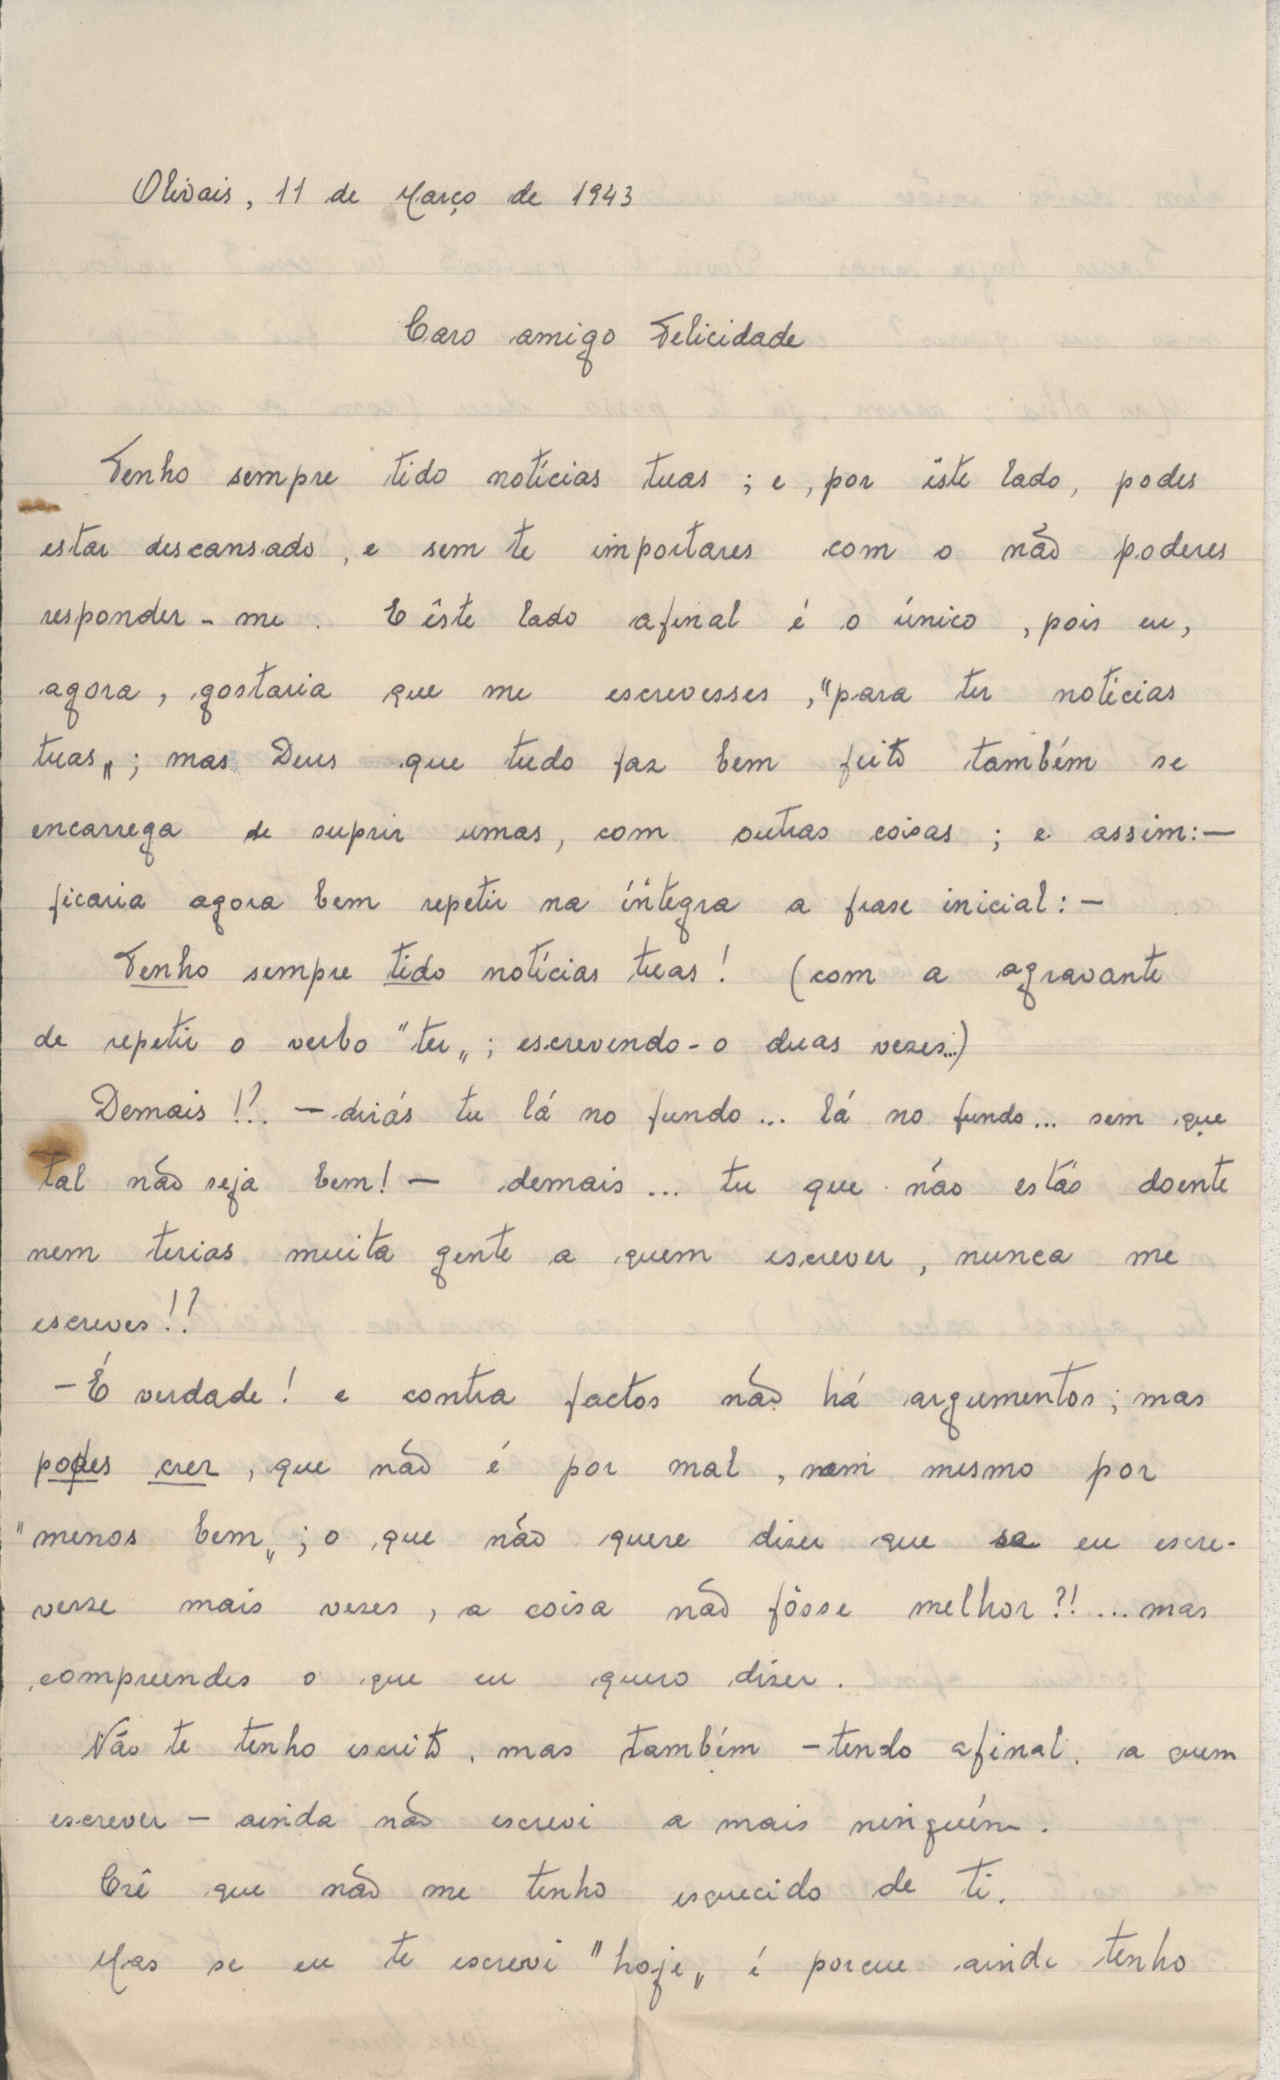 Olivais, 11 de Março de 1943
Caro amigo Felicidade
Tenho sempre tido notícias tuas ; e , por êste lado, podes
estar descansado , e sem te importares com o não poderes
responder - me . E êste lado afinal é o único , pois eu,
agora , gostaria que me escrevesses , "para ter notícias
tuas„ ; mas Deus que tudo faz bem feito também se
encarrega de suprir umas , com outras coisas ; e assim:—
ficaria agora bem repetir na íntegra a frase inicial : —
Tenho sempre tido notícias tuas ! (com a agravante
de repetir o verbo "ter„ ; escrevendo-o duas vezes...)
Demais !?. — dirás tu lá no fundo ... lá no fundo ... sem que
tal não seja bem ! — demais ... tu que não estás doente
nem terias muita gente a quem escrever , nunca me
escreves !?
- É verdade ! e contra factos não há argumentos ; mas
podes crer , que não é por mal , nem mesmo por
"menos bem„ ; o que não quere dizer que se eu escre-
vesse mais vezes , a coisa não fôsse melhor ?! ... mas
compreendes o que eu quero dizer .
Não te tenho escrito , mas também - tendo afinal a quem
escrever - ainda não escrevi a mais ninguém .
Crê que não me tenho esquecido de ti .
Mas se eu te escrevi "hoje„ é porque ainda tenho